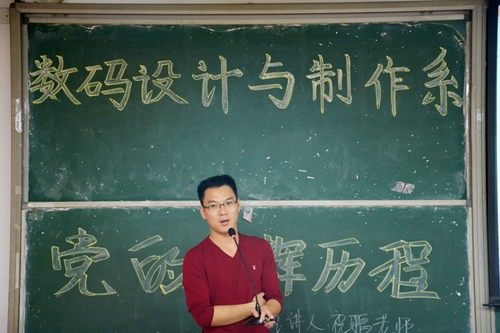 数码设计与制作系
党的 辉历程
讲人 老师